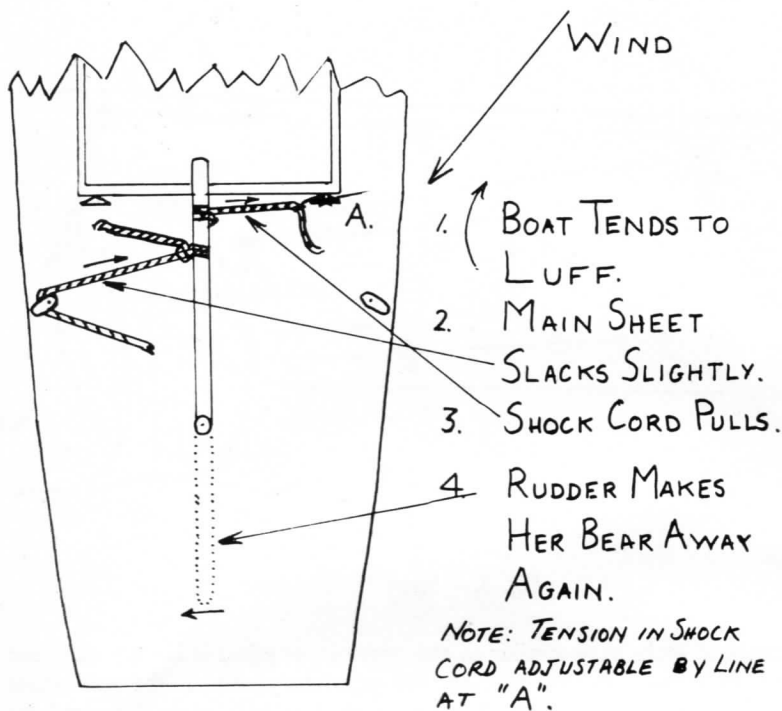 WIND
A.
1. BOAT TENDS TO
LUFF.
2. MAIN SHEET
SLACKS SLIGHTLY.
3. SHOCK CORD PULLS.
4 RUDDER MAKES
HER BEAR AWAY
AGAIN.
NOTE: TENSION IN SHOCK
CORD ADJUSTABLE BY LINE
AT "A".